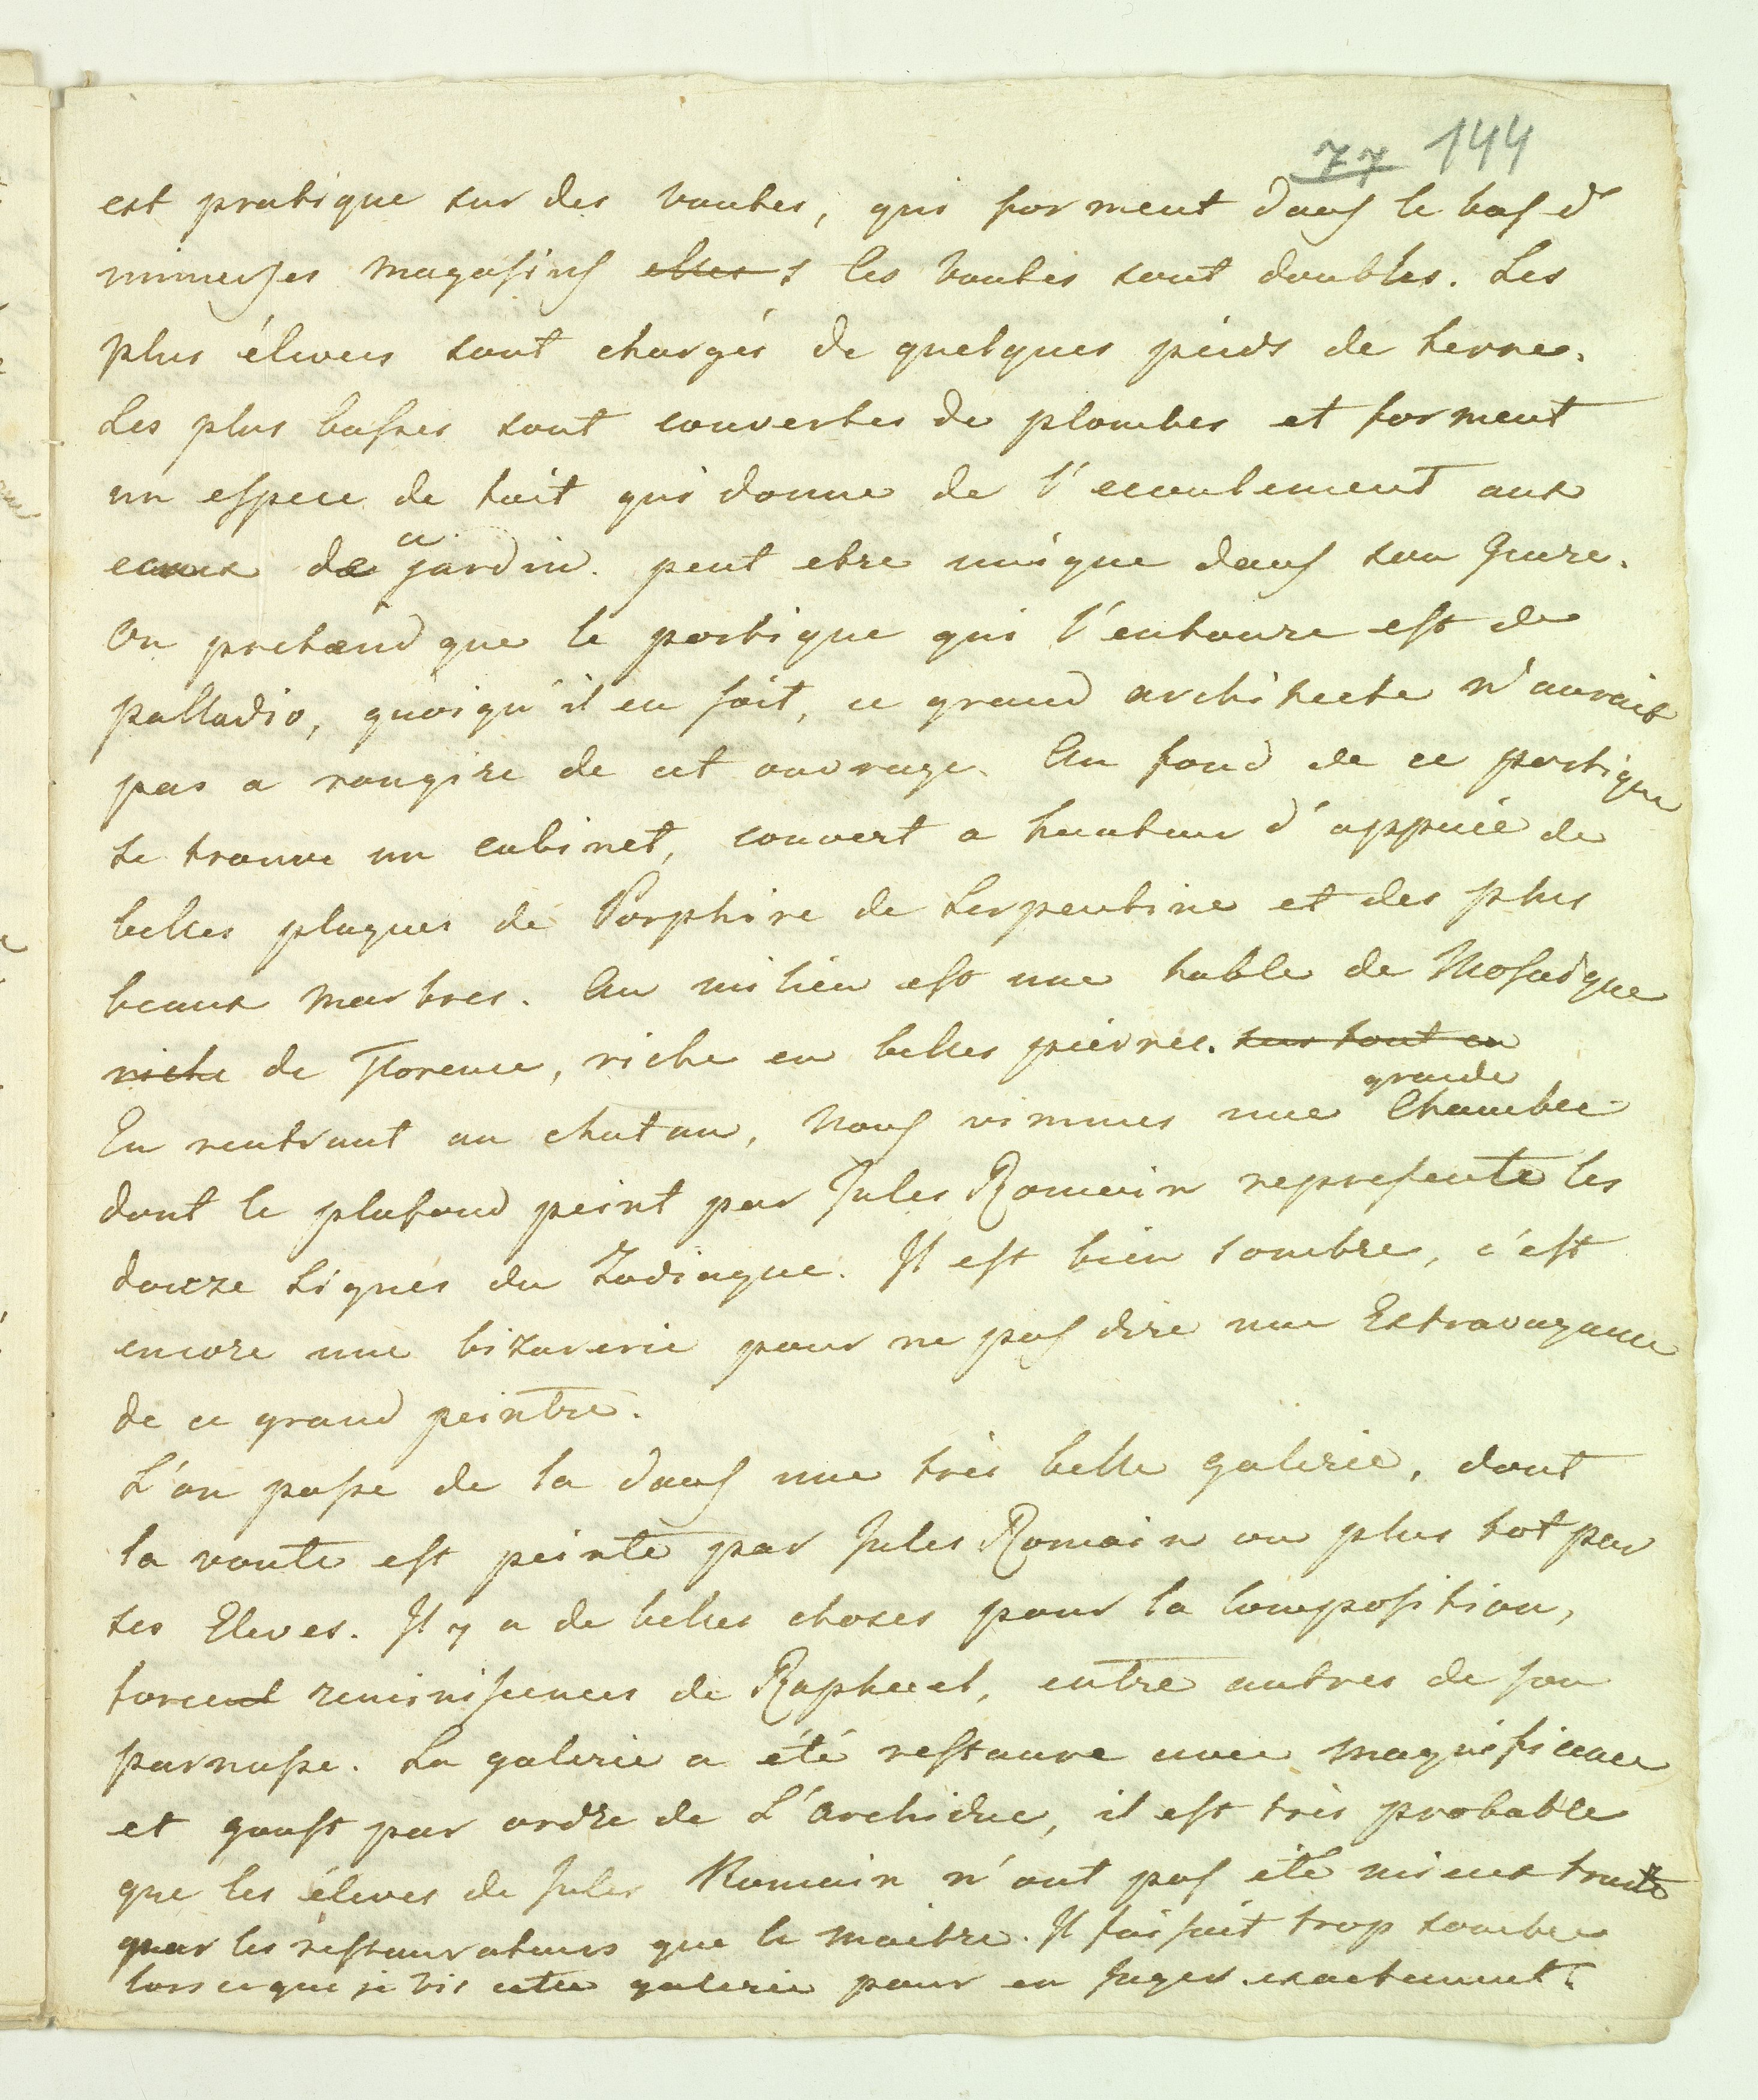 77 144
est pratique sur des voutes, qui forment dans le bas d'
immenses magasins elles s les voutes sont doubles. Les
plus élevees sont chargés de quelques pieds de terre.
Les plus basses sont couvertes de plombes et forment
un espece de toit qui donne de l'ecoulement aux
eaux de ce jardin. peut etre unique dans son Genre.
On pretend que le portique qui l'entoure est de
palladio, quoiqu'il en soit, ce grand architecte n'aurait
pas a rougire de cet ouvrage. Au fond de ce portique
se trouve un cabinet, couvert a hauteur d'appuié de
belles plaques de Porphire de Serpentine et des plus
beaux marbres. Au milieu est une table de Mosaique
riche de Florence, riche en belles pierres. sur tout en
En rentrant au chateau, nous vimmes une grande Chambre
dont le plafond peint par Jules Romain represente les
douze signes du Zodiaque. Il est bien sombre, c'est
encore une bizarerie pour ne pas dire une Extravagance
de ce grand peintre.
L'on passe de la dans une très belle galerie, dont
la voute est peinte par Jules Romain ou plus tot par
ses Eleves. Il y a de belles choses pour la composition,
force reminiscences de Raphael, entre autres de son
parnasse. La galerie a été restaure avec magnificence
et goust par ordre de L'Archiduc, il est très probable
que les éleves de Jules Romain n'ont pas été mieux traité
par les restaurateurs que le maitre. Il faisait trop sombre
lorsque je vis cette galerie pour en juger exactement.